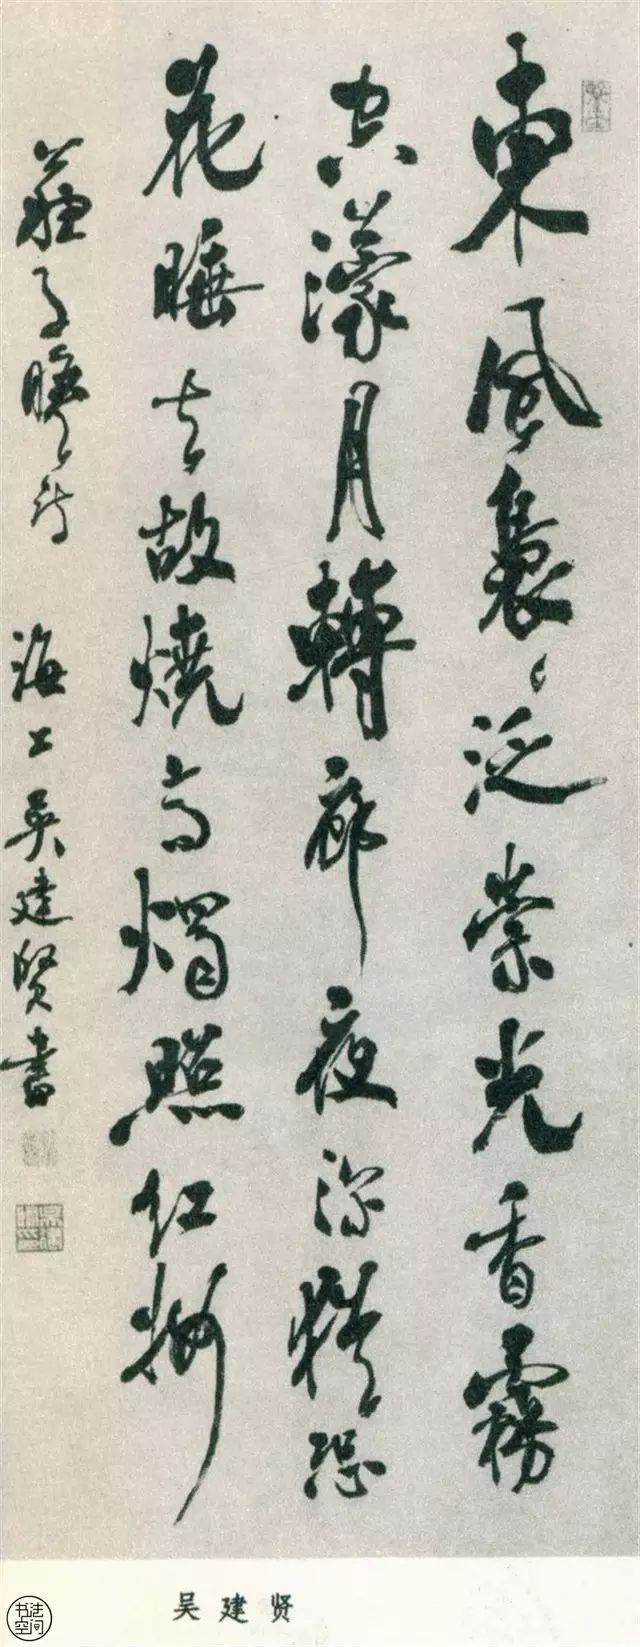 東風裊々泛崇光香霧
空濛月轉廊夜深恐
花睡去故燒高燭照紅妝
蘇子瞻詩 海上吳建賢書
吴建贤
书法空间